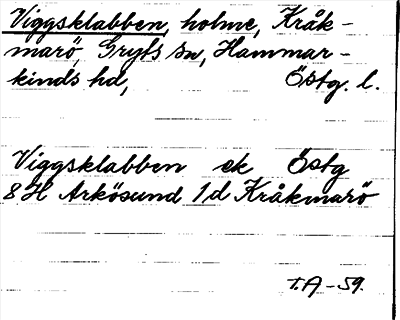 Viggsklabben, holme, Kråk-
marö, Gryts sn, Hammar-
kinds hd, Östg. l.
Viggsklabben ek Östg
8H Arkösund 1d Kråkmarö
T.A-59.